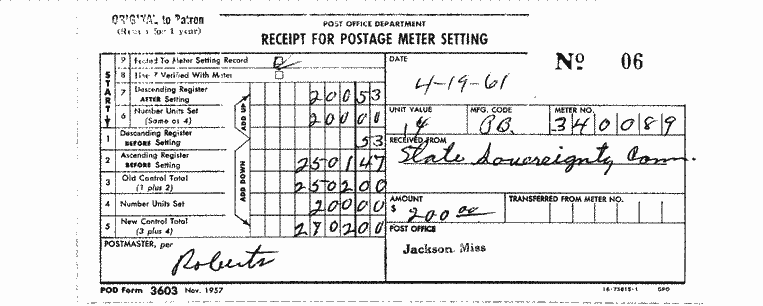 ORIGINAL to Patron
(Retain for 1 year)
POST OFFICE DEPARTMENT
RECEIPT FOR POSTAGE METER SETTING
No 06
START
9 Posted To Meter Setting Record
8 Line 7 Verified With Meter
7 Descending Register AFTER Setting 20053
6 Number Units Set (Same as 4) 20000
1 Descending Register BEFORE Setting 53
2 Ascending Register BEFORE Setting 250147
3 Old Control Total (1 plus 2) 250200
4 Number Units Set 20000
5 New Control Total (3 plus 4) 270200
ADD UP
ADD DOWN
DATE
4-19-61
UNIT VALUE
1¢
MFG. CODE
P.B.
METER NO.
340089
RECEIVED FROM
State Sovereignty Comm.
AMOUNT
$ 200 00
TRANSFERRED FROM METER NO.
POST OFFICE
Jackson Miss
POSTMASTER, per
Roberts
POD Form 3603 Nov. 1957
16-75815-1 GPO